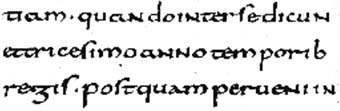 tiam · quandointersedicun
ettricesimoannotemporib
regis · postquamperueniin